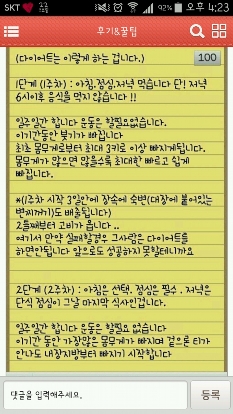 SKT 92% 오후 4:23
후기&꿀팁
(다이어트는 이렇게 하는 겁니다.) 100
1단계 (1주차) : 아침,점심,저녁 먹습니다 단! 저녁
6시이후 음식을 먹지 않습니다 !!
일주일간 합니다 운동은 할필요없습니다.
이기간동안 붓기가 빠집니다
최초 몸무게로부터 최대 3키로 이상 빠지게됩니다.
몸무게가 많으면 많을수록 최대한 빠르고 쉽게
빠집니다.
*(1주차 시작 3일안에 장속에 숙변(대장에 붙어있는
변찌꺼기)도 배출됩니다)
2틀째부터 고비가 옵니다 ..
여기서 만약 실패할경우 그사람은 다이어트를
하면안됩니다 앞으로도 성공하지 못할테니까요
2단계 (2주차) : 아침은 선택. 점심은 필수 . 저녁은
단식 점심이 그날 마지막 식사인겁니다.
일주일간 합니다 운동은 할필요 없습니다
이기간 동안 가장많은 몸무게가 빠지며 겉으론 티가
안나도 내장지방부터 빠지기 시작합니다
댓글을 입력해주세요. 등록